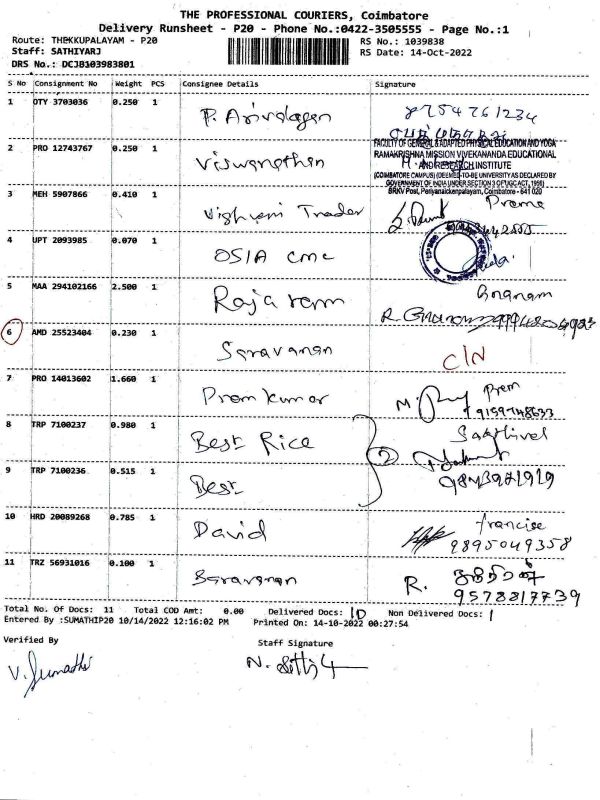 THE PROFESSIONAL COURIERS, Coimbatore
Delivery Runsheet - P20 - Phone No.:0422-3505555 - Page No.:1
Route: THEKKUPALAYAM - P20 RS No.: 1039838
Staff: SATHIYARJ RS Date: 14-Oct-2022
DRS No.: DCJB103983801
S No Consignment No Weight PCS Consignee Details Signature
1 OTY 3703036 0.250 1 P. Arivalagan 8754761234
2 PRO 12743767 0.250 1 Viswanathan
FACULTY OF GENERAL & ADAPTED PHYSICAL EDUCATION AND YOGA
RAMAKRISHNA MISSION VIVEKANANDA EDUCATIONAL
AND RESEARCH INSTITUTE
(COIMBATORE CAMPUS) (DEEMED-TO-BE UNIVERSITY AS DECLARED BY
GOVERNMENT OF INDIA UNDER SECTION 3 OF UGC ACT, 1956)
SRKV Post, Periyanaickenpalayam, Coimbatore - 641 020
3 MEH 5907866 0.410 1 Trader Prema
4 UPT 2093985 0.070 1 OSIA cmc
5 MAA 294102166 2.500 1 Rajaram Gnanam
6 AMD 25523404 0.230 1 Saravanan C/N
7 PRO 14013602 1.660 1 Premkumar M. Prem
9159748633
8 TRP 7100237 0.980 1 Best Rice Sakthivel
2
9 TRP 7100236 0.515 1 Best 9843921919
10 HRD 20089268 0.785 1 David francise
9895049358
11 TRZ 56931016 0.100 1 Saravanan R.
9578817739
Total No. Of Docs: 11 Total COD Amt: 0.00 Delivered Docs: 10 Non Delivered Docs: 1
Entered By :SUMATHIP20 10/14/2022 12:16:02 PM Printed On: 14-10-2022 00:27:54
Verified By Staff Signature
V. Sumathi